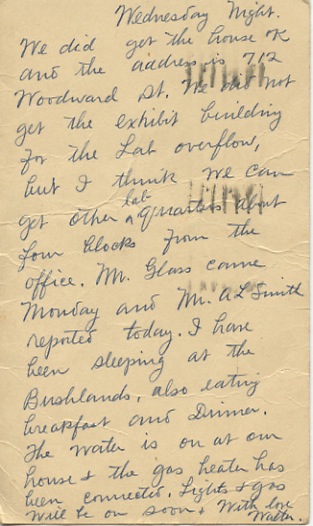 Wednesday Night.
We did get the house OK
and the address is 712
Woodward St. We did not
get the exhibit building
for the Lab overflow,
but I think we can
get other lab quarters about
four blocks from the
office. Mr. Glass came
Monday and Mr. A L Smith
reported today. I have
been sleeping at the
Bushlands, also eating
breakfast and Dinner.
The water is on at our
house & the gas heater has
been connected. Lights & gas
will be on soon & With love
Walter.